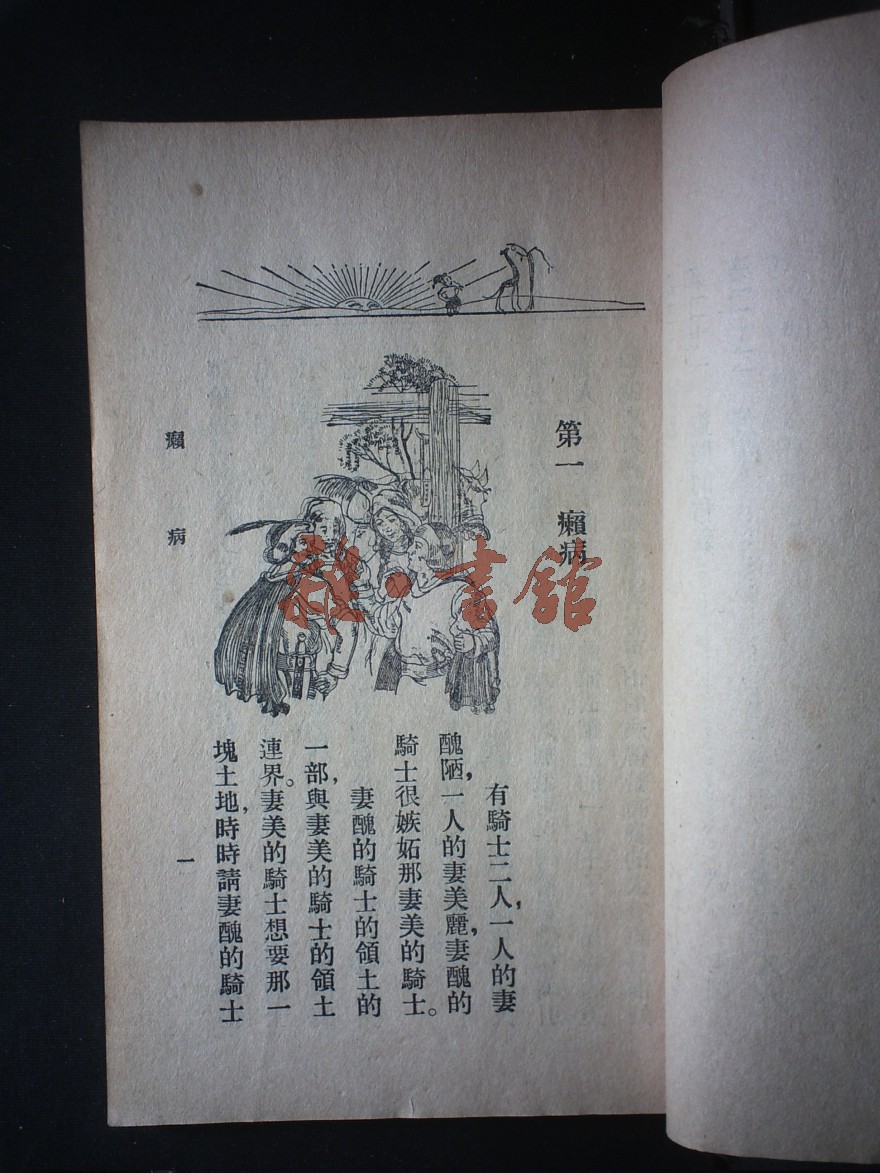 第一　癩病
有騎士二人，一人的妻
醜陋，一人的妻美麗，妻醜的
騎士很嫉妬那妻美的騎士。
妻醜的騎士的領土的
一部，與妻美的騎士的領土
連界。妻美的騎士想要那一
塊土地，時時請妻醜的騎士
癩病
一
雜·書館